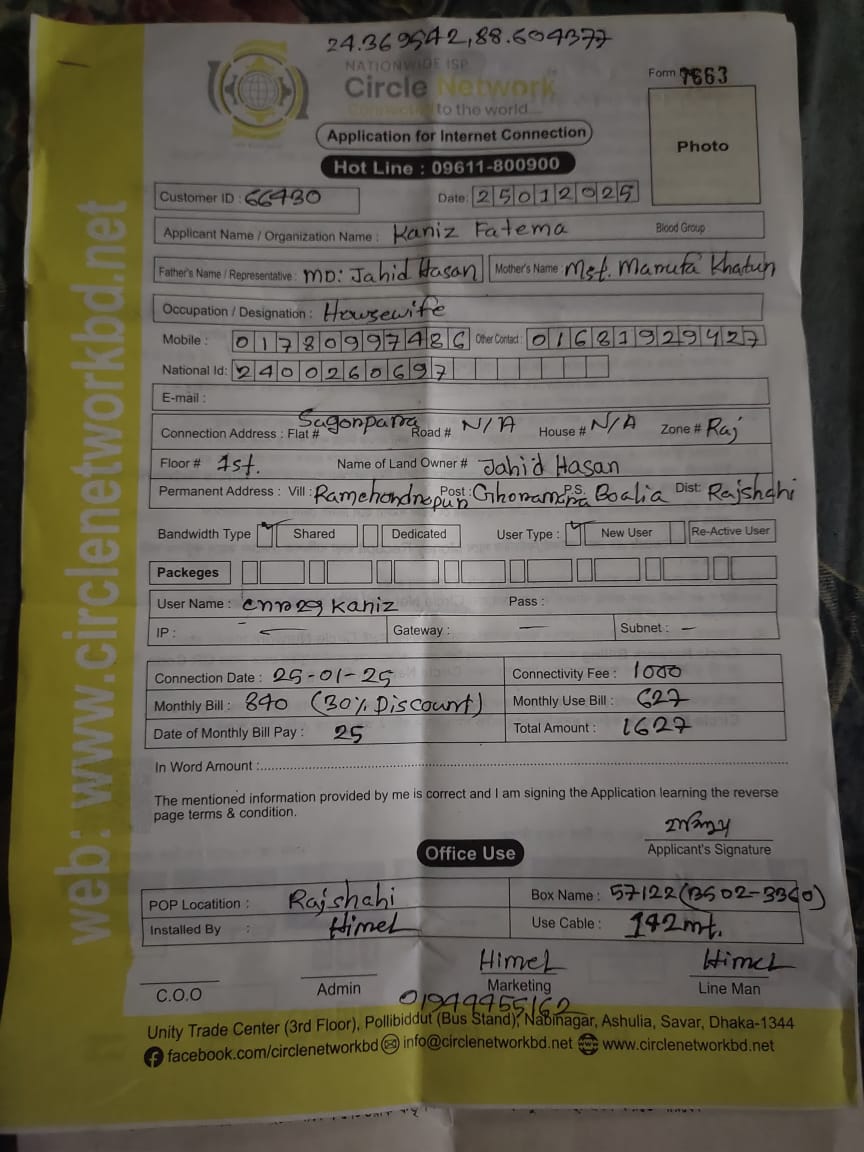 24.369542,88.604377
NATIONWIDE ISP
Circle Network
Connected to the world...
Form 7663
Photo
Application for Internet Connection
Hot Line : 09611-800900
Customer ID : 66430 Date: 25012025
Applicant Name / Organization Name : Kaniz Fatema Blood Group
Father's Name / Representative : MD: Jahid Hasan Mother's Name : Mst. Marufa Khatun
Occupation / Designation : Housewife
Mobile : 01780997486 Other Contact : 01681929427
National Id: 2400260697
E-mail :
Connection Address : Flat # Sagonparra Road # N/A House # N/A Zone # Raj
Floor # 1st. Name of Land Owner # Jahid Hasan
Permanent Address : Vill : Ramchondropur Post : Ghoramara P.S. Boalia Dist: Rajshahi
Bandwidth Type ✓ Shared Dedicated User Type : ✓ New User Re-Active User
Packeges
User Name : kaniz Pass :
IP : — Gateway : — Subnet : —
Connection Date : 25-01-25 Connectivity Fee : 1000
Monthly Bill : 840 (30% Discount) Monthly Use Bill : 627
Date of Monthly Bill Pay : 25 Total Amount : 1627
In Word Amount :
The mentioned information provided by me is correct and I am signing the Application learning the reverse
page terms & condition.
Applicant's Signature
Office Use
POP Locatition : Rajshahi Box Name : 57122(BS02-3360)
Installed By : Himel Use Cable : 142mt.
Himel Himel
C.O.O Admin Marketing Line Man
01944455162
Unity Trade Center (3rd Floor), Pollibiddut (Bus Stand), Nabinagar, Ashulia, Savar, Dhaka-1344
facebook.com/circlenetworkbd info@circlenetworkbd.net www.circlenetworkbd.net
web: www.circlenetworkbd.net